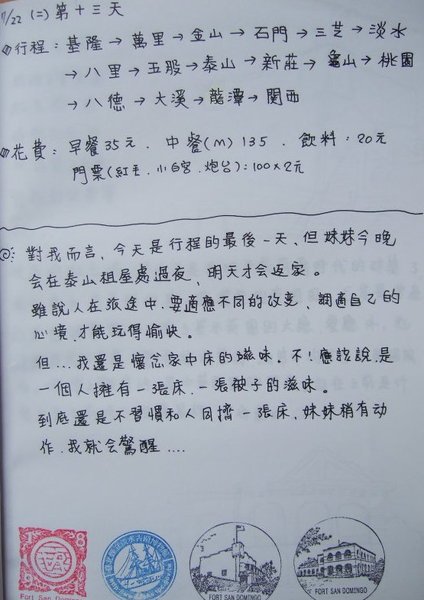 /22 (二) 第十三天
行程：基隆→萬里→金山→石門→三芝→淡水
→八里→五股→泰山→新莊→龜山→桃園
→八德→大溪→龍潭→関西
花費：早餐35元．中餐(m) 135．飲料：20元
門票(紅毛．小白宮．炮台)：100×2元
對我而言，今天是行程的最後一天，但妹妹今晚
会在泰山租屋處過夜，明天才会返家。
雖說人在旅途中，要適應不同的改变，調適自己的
心境，才能玩得愉快。
但...我還是懷念家中床的滋味，不！應該說是
一個人擁有一張床，一張被子的滋味。
到底還是不習慣和人同擠一張床，妹妹稍有动
作，我就会驚醒....
FORT SAN DOMINGO
FORT SAN DOMINGO